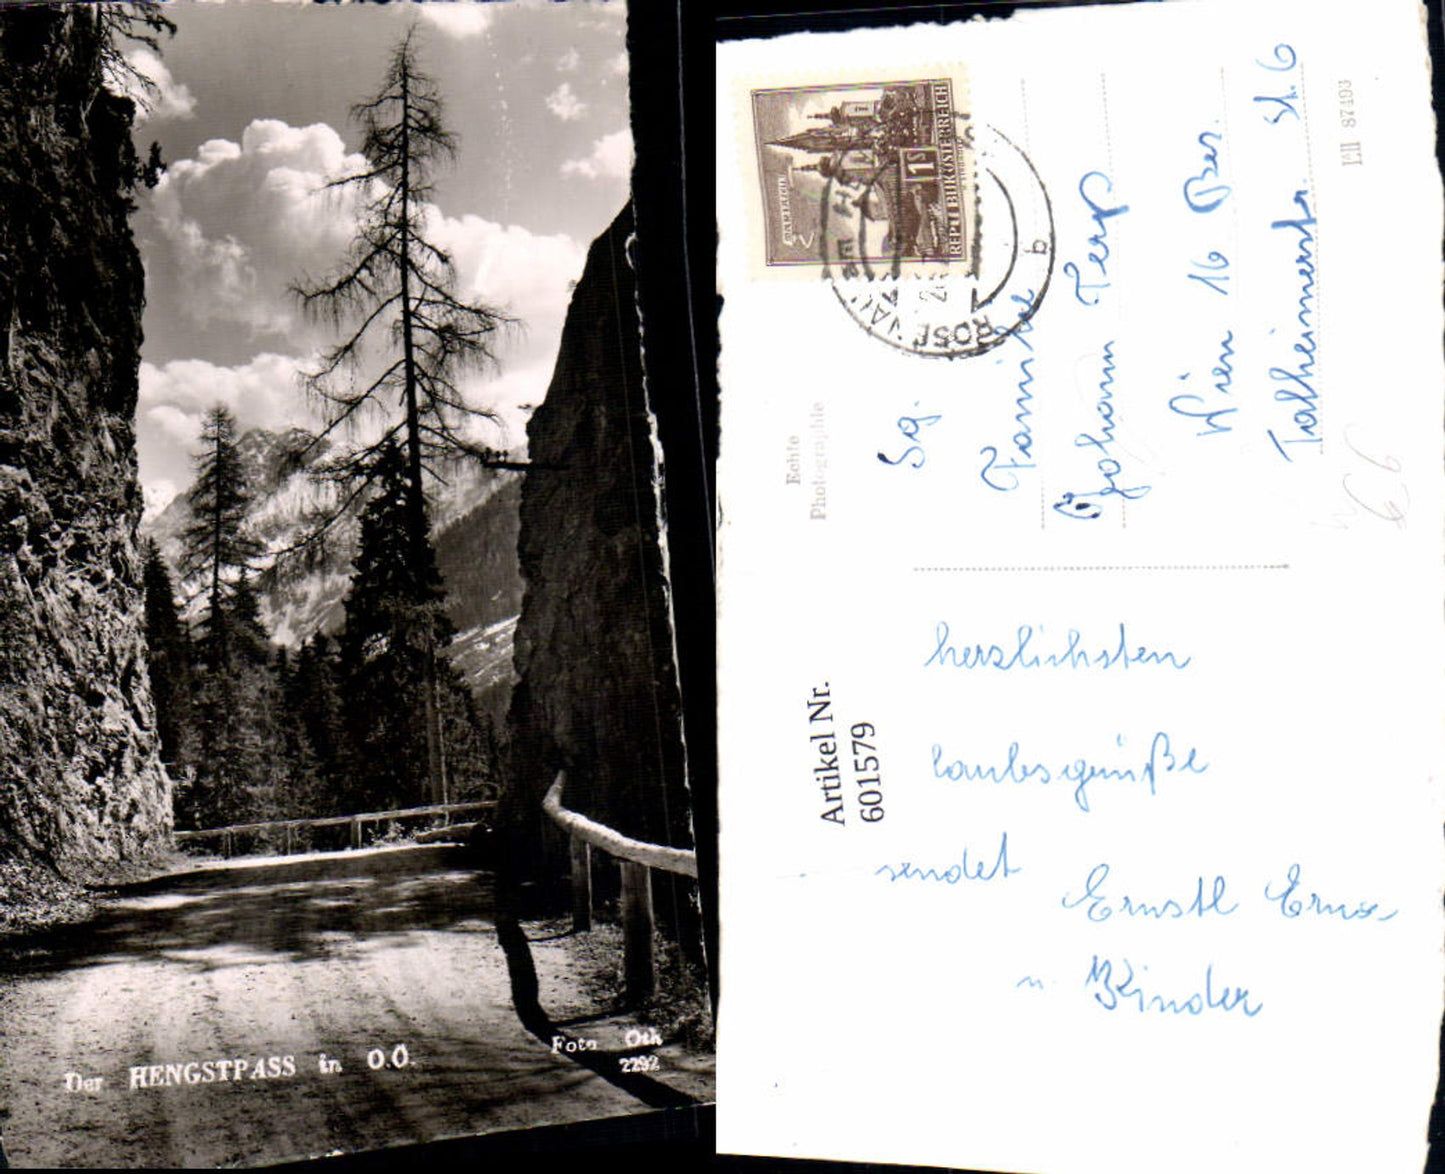 Der HENGSTPASS in O.Ö.
Foto Oth
2292
MARIAZELL
1S
REPUBLIK ÖSTERREICH
b
Echte
Photographie
Sg.
Familie
Johann Terp
Wien 16 Bez.
Talheimerstr. St. 6
LII 87493
Artikel Nr.
601579
herzlichsten
sendet
Ernstl Erna
u. Kinder